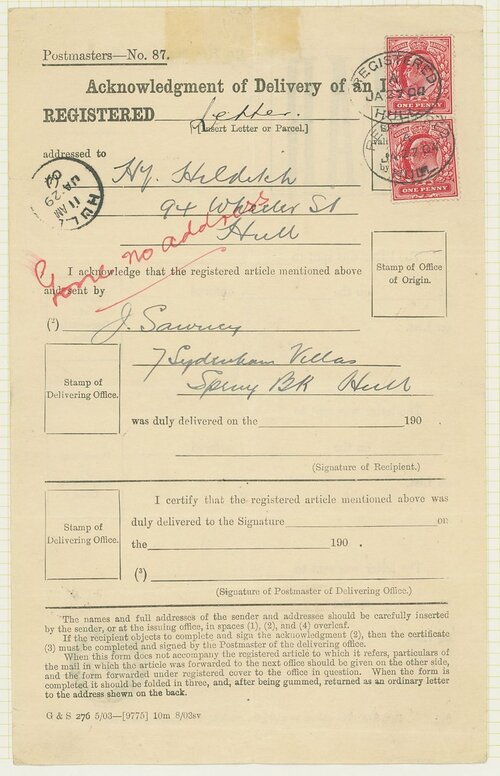 Postmasters—No. 87.
Acknowledgment of Delivery of an I
REGISTERED Letter.
[Insert Letter or Parcel.]
addressed to
Hy. Hilditch
94 Wheeler St
Hull
Gone no address
HULL
11 AM
JA 29
04
REGISTERED
JA 27 04
HULL
ONE PENNY
REGISTERED
HULL
ONE PENNY
I acknowledge that the registered article mentioned above
and sent by
Stamp of Office
of Origin.
(2) J. Sawney
7 Sydenham Villas
Spring BK Hull
Stamp of
Delivering Office.
was duly delivered on the 190 .
(Signature of Recipient.)
I certify that the registered article mentioned above was
duly delivered to the Signature on
the 190 .
Stamp of
Delivering Office.
(3)
(Signature of Postmaster of Delivering Office.)
The names and full addresses of the sender and addressee should be carefully inserted
by the sender, or at the issuing office, in spaces (1), (2), and (4) overleaf.
If the recipient objects to complete and sign the acknowledgment (2), then the certificate
(3) must be completed and signed by the Postmaster of the delivering office.
When this form does not accompany the registered article to which it refers, particulars of
the mail in which the article was forwarded to the next office should be given on the other side,
and the form forwarded under registered cover to the office in question. When the form is
completed it should be folded in three, and, after being gummed, returned as an ordinary letter
to the address shewn on the back.
G & S 276 5/03—[9775] 10m 8/03sv